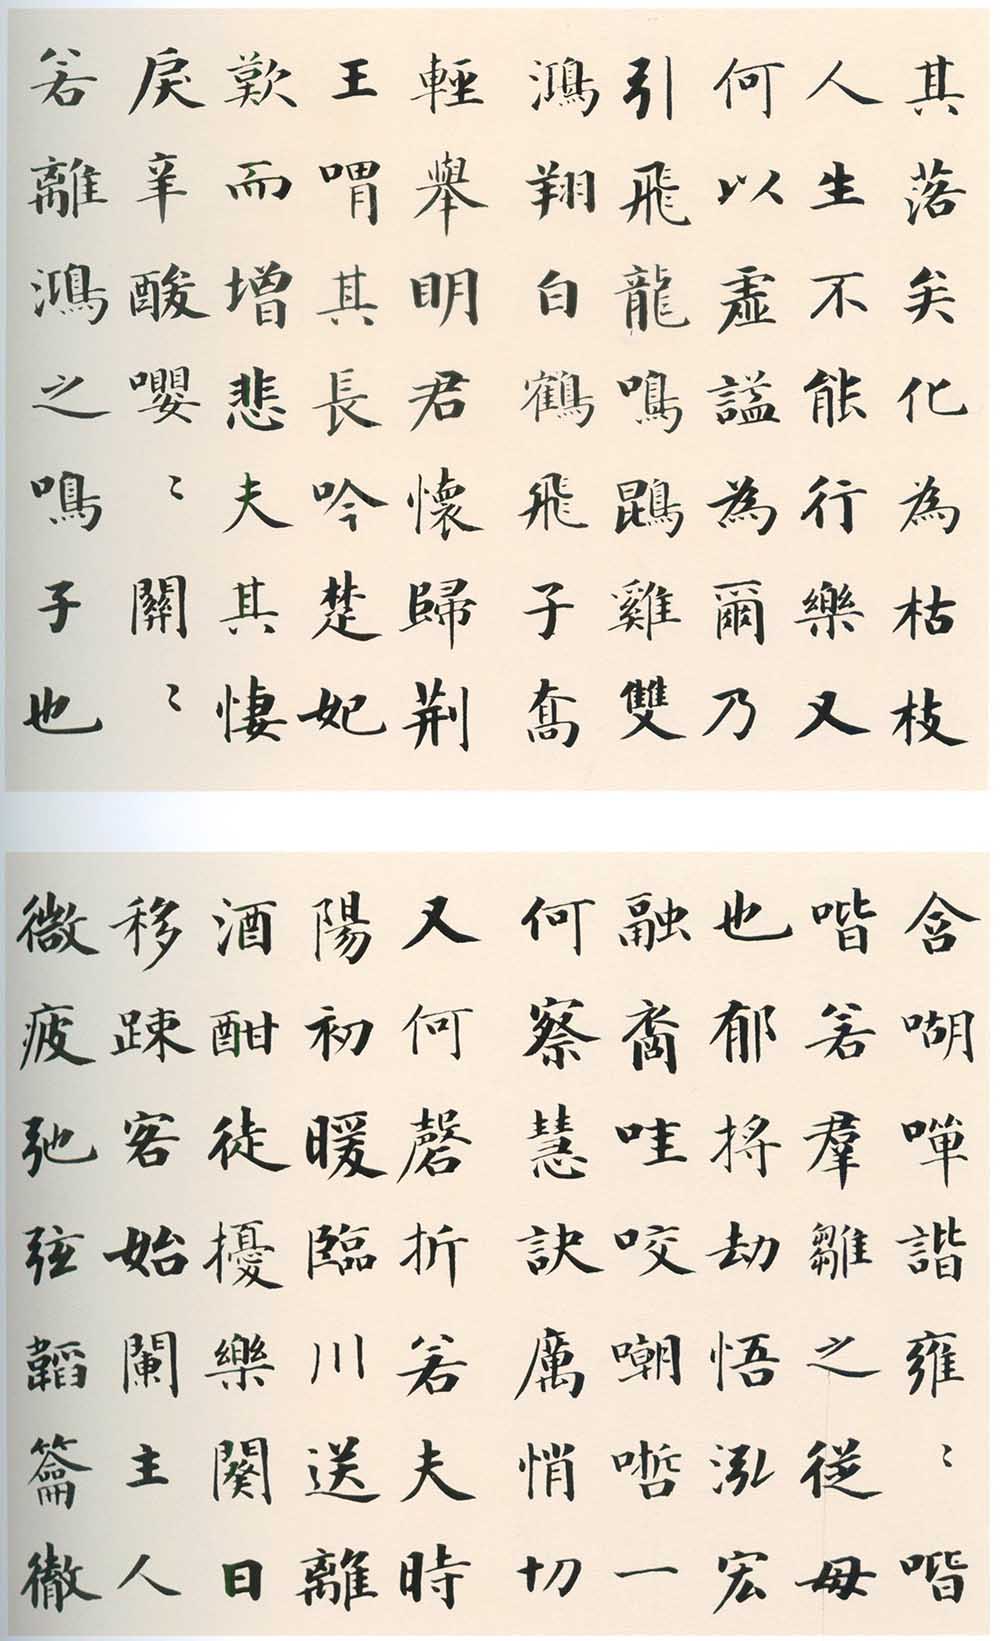 其落矣化為枯枝
人生不能行樂又
何以虛謚為爾乃
引飛龍鳴鵾雞雙
鴻翔白鶴飛子喬
輕舉明君懷歸荆
王喟其長吟楚妃
歎而增悲夫其悽
戾辛酸嚶〻關〻
若離鴻之鳴子也
含㗅嘽諧雍〻喈
喈若羣雛之從母
也郁捋劫悟泓宏
融裔哇咬嘲哳一
何察慧訣厲悄切
又何磬折若夫時
陽初暖臨川送離
酒酣徒擾樂闋日
移踈客始闌主人
微疲弛弦韜籥徹